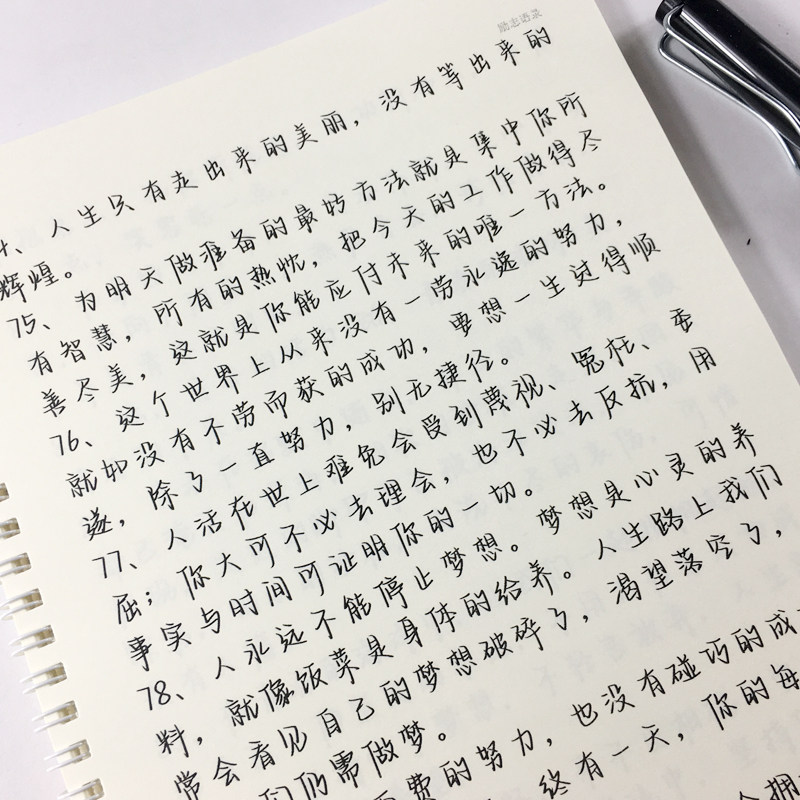 励志语录
4、人生只有走出来的美丽，没有等出来的
辉煌。
75、为明天做准备的最好方法就是集中你所
有智慧，所有的热忱，把今天的工作做得尽
善尽美，这就是你能应付未来的唯一方法。
76、这个世界上从来没有一劳永逸的努力，
就如没有不劳而获的成功，要想一生过得顺
遂，除了一直努力，别无捷径。
77、人活在世上难免会受到蔑视、冤枉、委
屈；你大可不必去理会，也不必去反抗，用
事实与时间可证明你的一切。
78、人永远不能停止梦想。梦想是心灵的养
料，就像饭菜是身体的给养。人生路上我们
常会看见自己的梦想破碎了，渴望落空了，
们仍需做梦。
费的努力，也没有碰巧的成
终有一天，你的每
拥